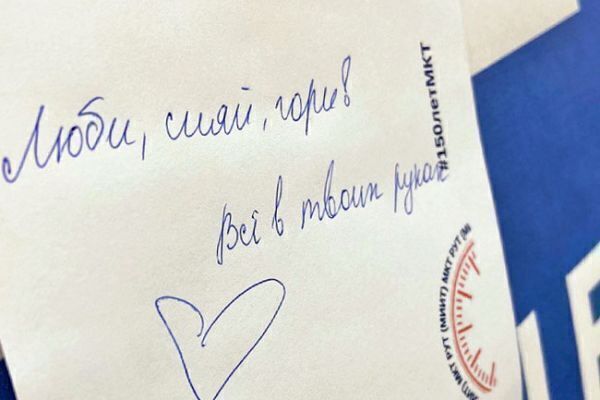 Люби, сияй, гори в
Всё в твоих руках
#150летМКТ
(МИИТ) МКТ РУТ (МИИТ) МКТ РУТ (М